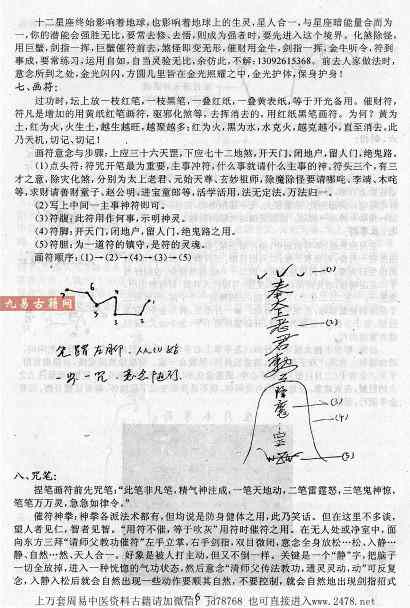 十二星座终始影响着地球,也影响着地球上的生灵,星人合一,与星座暗能量合而为
一,你的潜能会强胜无比,要常去修、去悟,则成为强者时,要先进入这个境界。化煞除怪,
用巨蟹,剑指一挥,巨蟹催符前去,煞怪即变无形,催财用金牛,剑指一挥,金牛听令,符到
事成,要常练习,运用自如,自当灵验无比,余仿此,不解:13092615368。前去人家做法时,
意念所到之处,金光闪闪,方圆几里皆在金光照耀之中,金光护体,保身护身!
七、画符:
过功时,坛上放一枝红笔,一枝黑笔,一叠红纸,一叠黄表纸,等于开光备用。催财符,
符凡是增加的用黄纸红笔画符,驱邪化煞等,去挥消去的,用红纸黑笔画符。为何?黄为
土,红为火,火生土,越生越旺,越聚越多;红为火,黑为水,水克火,越克越小,直至消去,此
乃天机,切记、切记!
画符意念与步骤:上应三十六天罡,下应七十二地煞,开天门,闭地户,留人门,绝鬼路。
(1)点头符:符咒开笔最为重要,主事冲符,什么事就请什么主事的神,符头三个,有三
才之意,除灾化煞,分别为太上老君、元始天尊、玄妙祖师,除魔除怪要请哪吒、李靖、木吒
等,求财请善财童子、赵公明、进宝童郎等,活学活用,法无定法,万法归一。
(2)写上中间一主事神符即可。
(3)符腹:此符用作何事,示明神灵。
(4)符脚:开天门,闭地户,留人门,绝鬼路之用。
(5)符胆:为一道符的镇守,是符的灵魂。
画符顺序:(1)→(2)→(4)→(3)→(5)
(1)
奉太上老君勅
(2)
降魔
(3)
(4)
(5)
九易古籍网
先踏左脚,从1始
一步一咒,意念随行
八、咒笔:
捏笔画符前先咒笔:“此笔非凡笔,精气神注成,一笔天地动,二笔雷霆怒,三笔鬼神惊,
笔笔万万灵,急急如律令。”
催符神拳:神拳各派法术都有,但均说是防身健体之用,此乃笑话。但在这里不多谈,
望人者见仁,智者见智。“用符不催,等于吹灰”用符时催符之用。在无人处或净室中,面
向东方三拜“请师父教功催符”左手立掌,右手剑指,双目微闭,意念全身放松…松、入静…
静、自然…然、天人合一。好象是被人打主动,但又不倒一样。关键是一个“静”字,把脑子
一切全放掉,进入一种恍惚的气功状态,然后意念“请师父传法教功,速灵灵动,动”可反复
念,入静入松后就会自然出现一些动作要顺其自然,不要控制,就会自然地出现剑指招式
6
上万套周易中医资料古籍请加微信?jd78768 也可直接进入www.2478.net